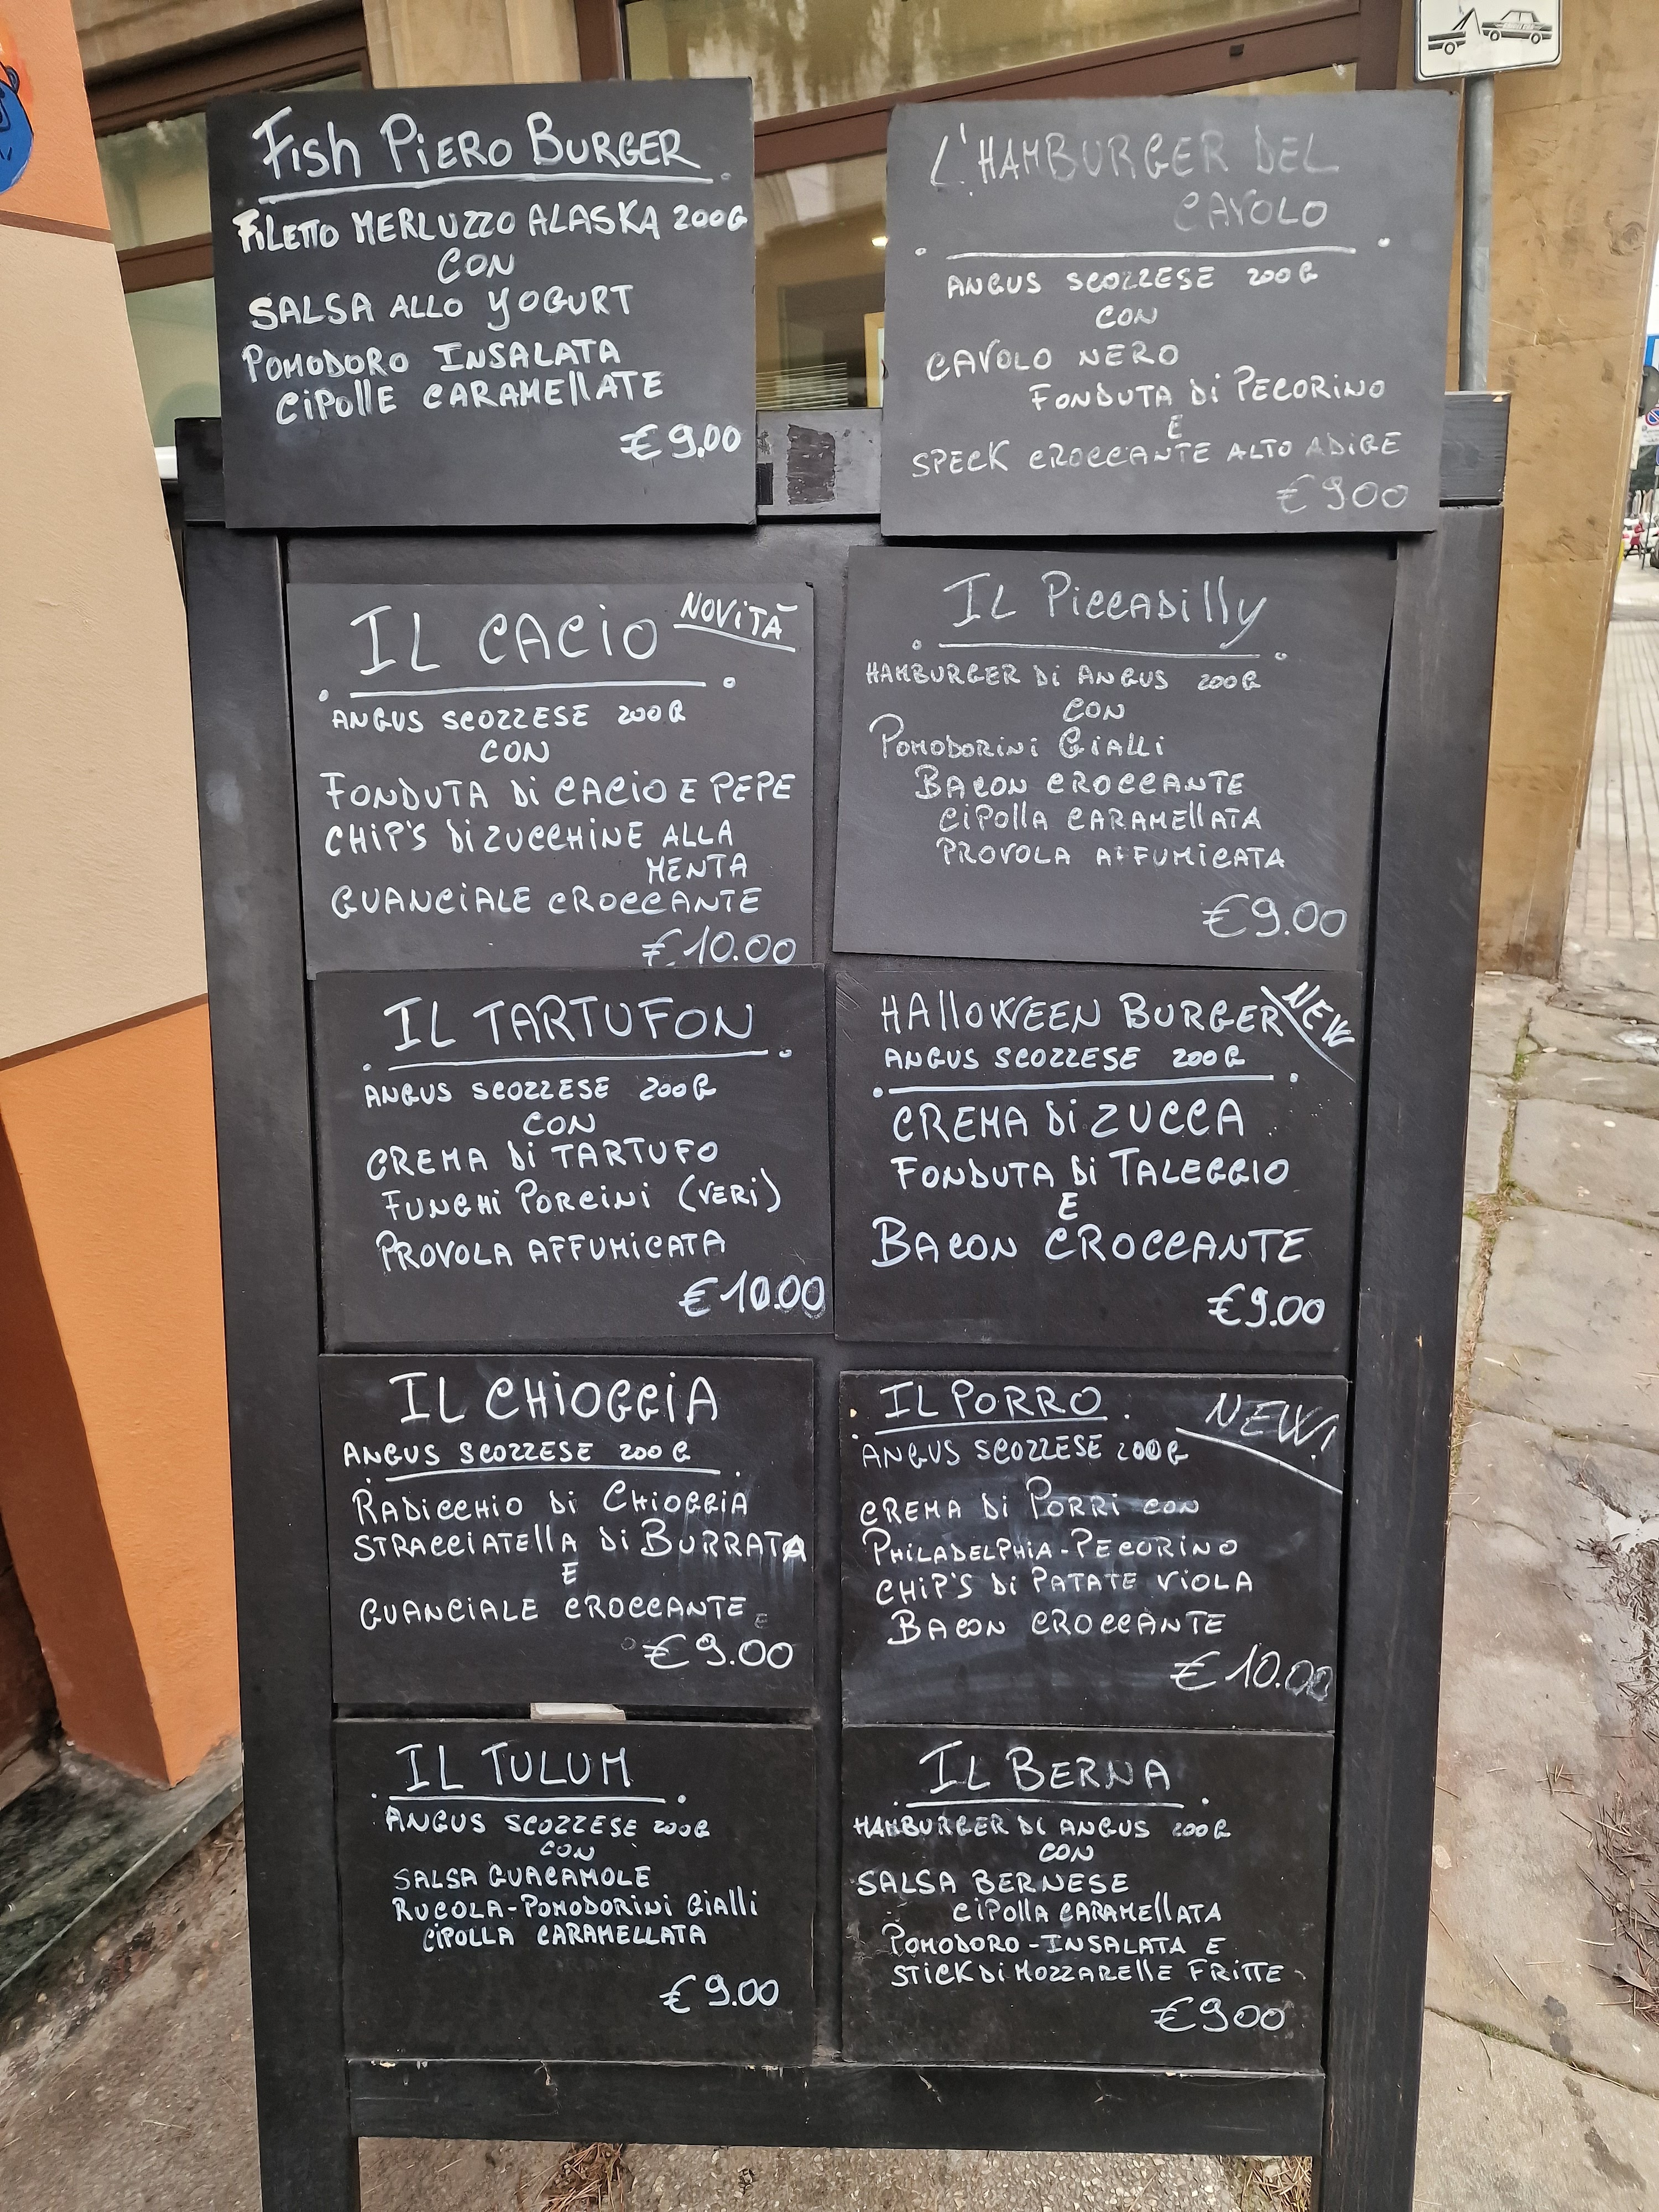 Fish Piero Burger
Filetto Merluzzo Alaska 200G
con
Salsa allo Yogurt
Pomodoro Insalata
Cipolle Caramellate
€ 9.00
L'Hamburger del
Cavolo
Angus Scozzese 200G
con
Cavolo Nero
Fonduta di Pecorino
e
Speck Croccante Alto Adige
€ 900
Il Cacio
Novità
Angus Scozzese 200G
con
Fonduta di Cacio e Pepe
Chip's di Zucchine alla
Menta
Guanciale Croccante
€ 10.00
Il Piccadilly
Hamburger di Angus 200G
con
Pomodorini Gialli
Bacon Croccante
Cipolla Caramellata
Provola Affumicata
€ 9.00
Il Tartufon
Angus Scozzese 200G
con
Crema di Tartufo
Funghi Porcini (veri)
Provola Affumicata
€ 10.00
Halloween Burger
New
Angus Scozzese 200G
Crema di Zucca
Fonduta di Taleggio
e
Bacon Croccante
€ 9.00
Il Chioggia
Angus Scozzese 200G
Radicchio di Chioggia
Stracciatella di Burrata
e
Guanciale Croccante
€ 9.00
Il Porro
New!
Angus Scozzese 200G
Crema di Porri con
Philadelphia-Pecorino
Chip's di Patate Viola
Bacon Croccante
€ 10.00
Il Tulum
Angus Scozzese 200G
con
Salsa Guacamole
Rucola-Pomodorini Gialli
Cipolla Caramellata
€ 9.00
Il Berna
Hamburger di Angus 200G
con
Salsa Bernese
Cipolla Caramellata
Pomodoro-Insalata e
Stick di Mozzarelle Fritte
€ 900